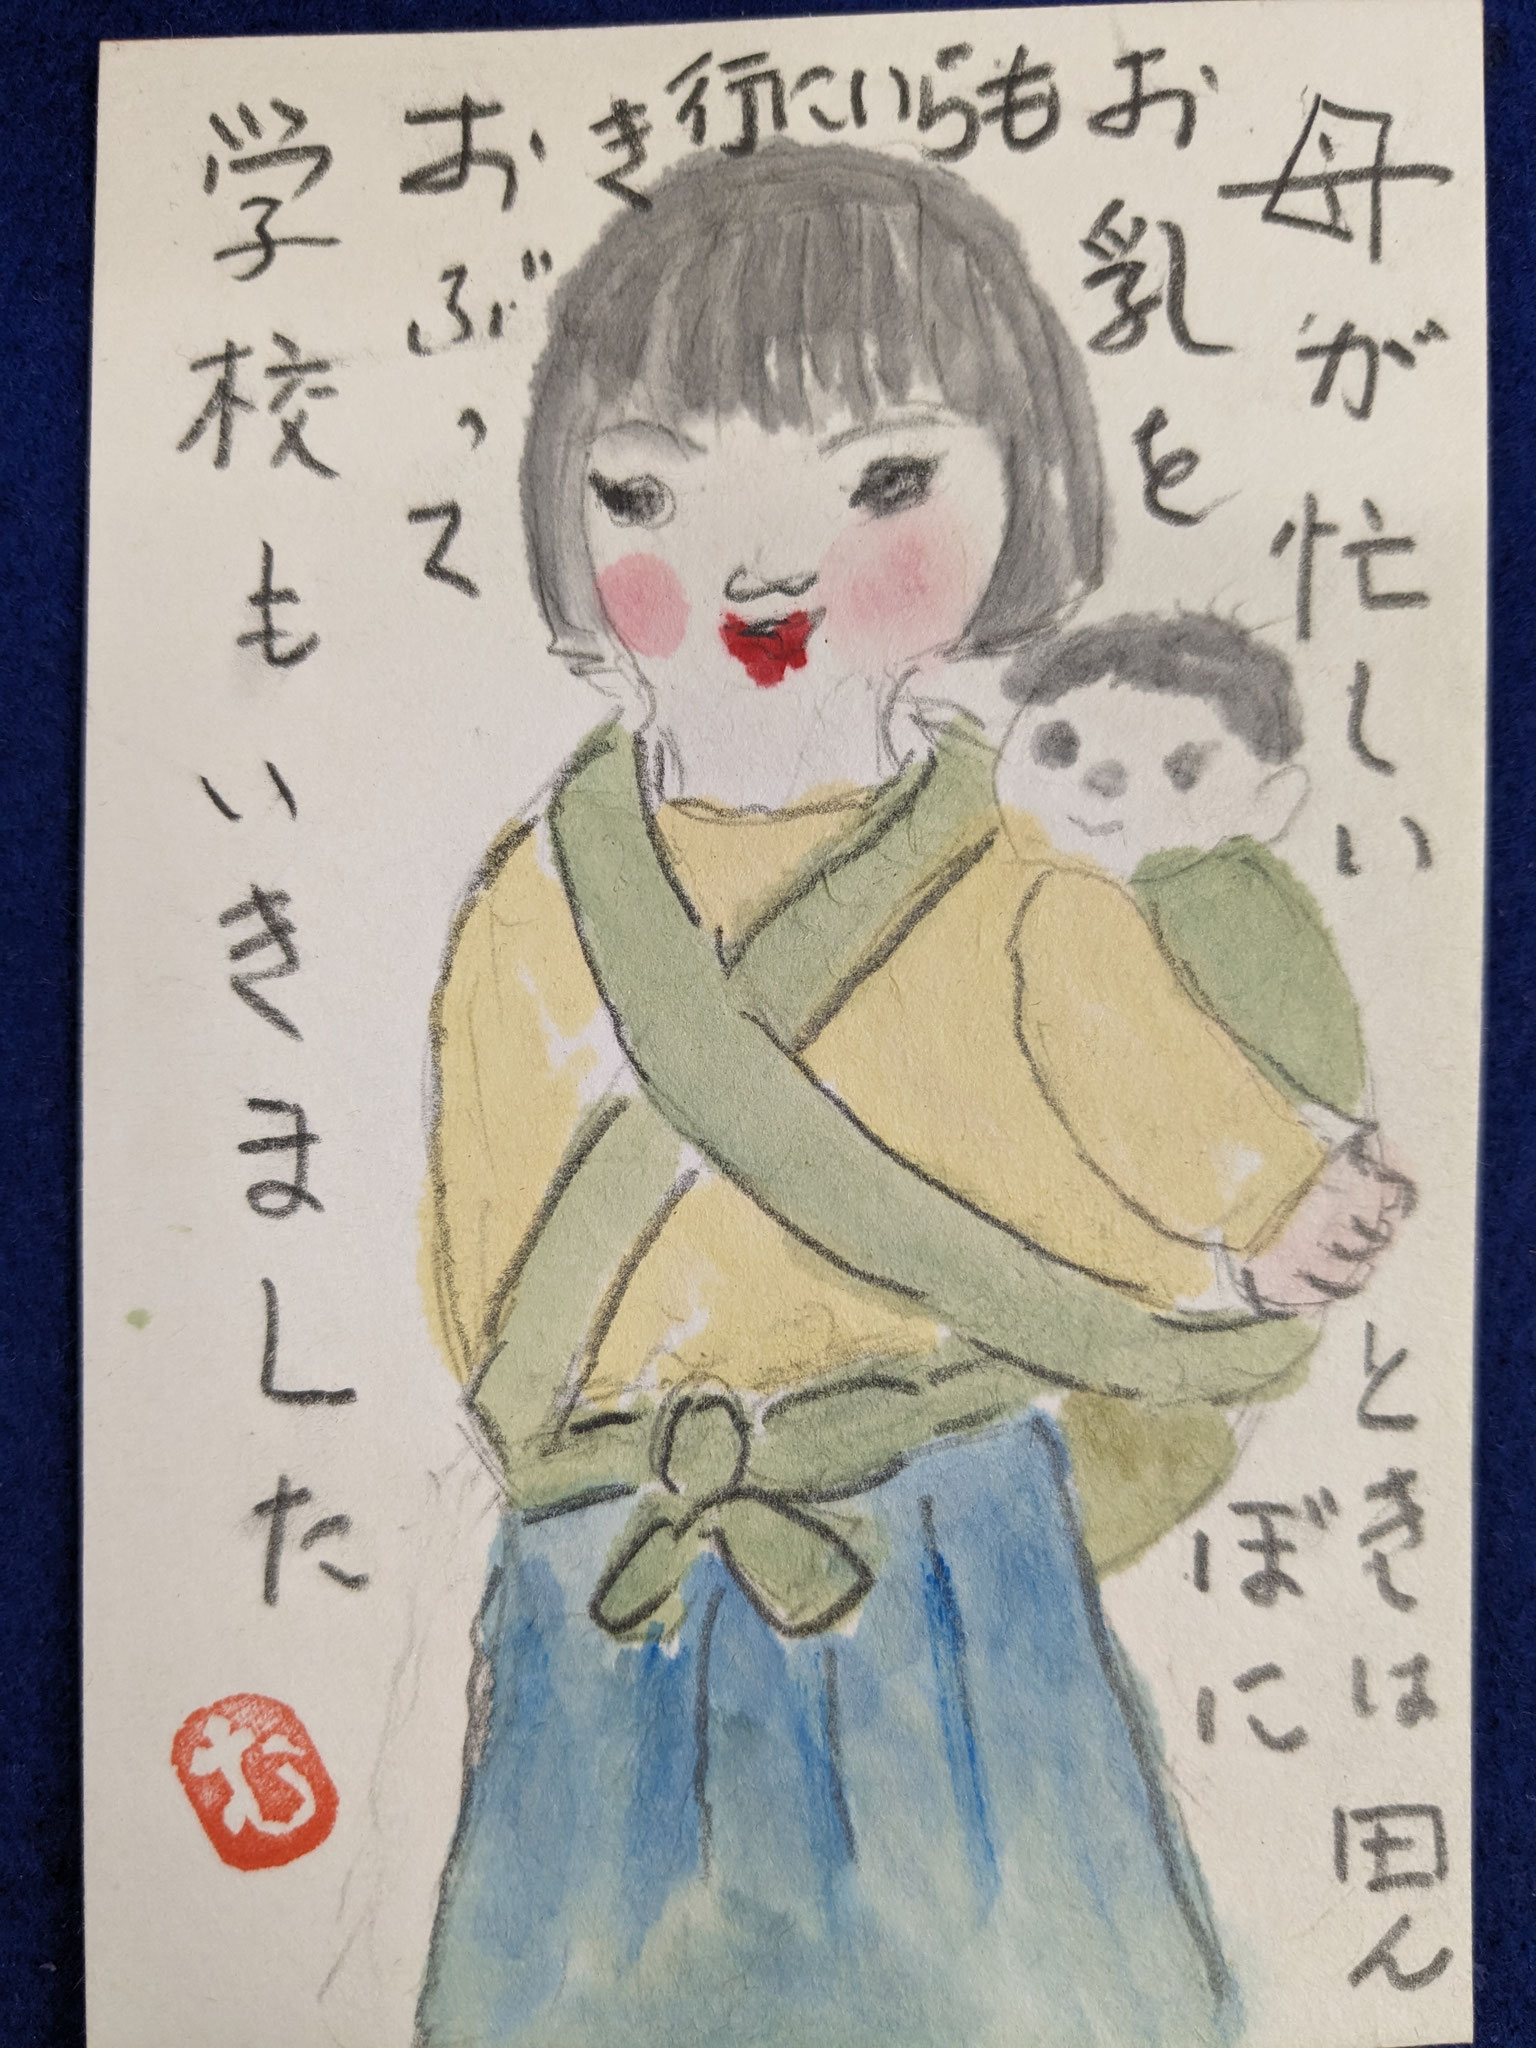 母が忙しいときは田ん
ぼに
お乳を
もらいに行
き
おぶって
学校もいきました
む